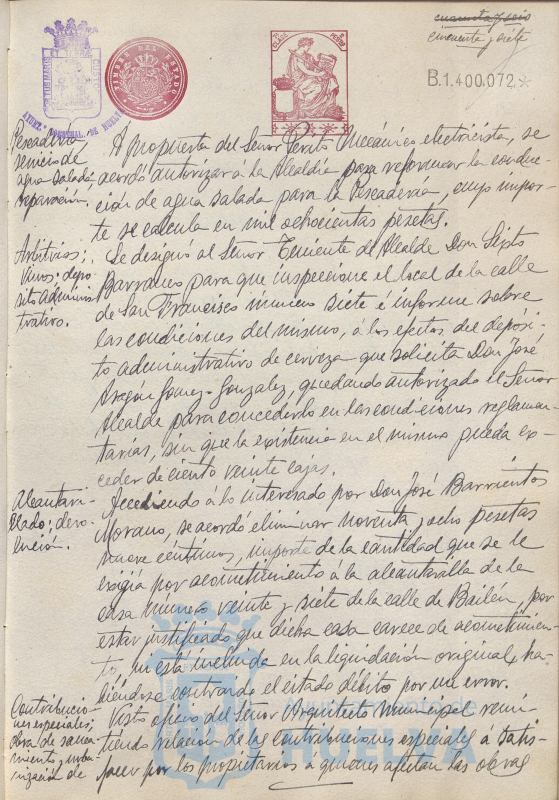 cuarenta y seis
cincuenta y siete
B.1.400.072
TIMBRE DEL ESTADO
Pescadería;
servicio de
agua salada;
reparación.
A propuesta del Señor Perito Mecánico electricista, se
acordó autorizar a la Alcaldía para reformar la conduc-
ción de agua salada para la Pescadería, cuyo impor-
te se calcula en mil ochocientas pesetas.
Arbitrios;
Vinos; depo-
sito adminis-
trativo.
Se designó al Señor Teniente de Alcalde Don Sixto
Barranco para que inspeccione el local de la calle
de San Francisco número siete é informe sobre
las condiciones del mismo, á los efectos del depósi-
to administrativo de cerveza que solicita Don José
Aragón Gómez-González, quedando autorizado el Señor
Alcalde para concederlo en las condiciones reglamen-
tarias, sin que la existencia en el mismo pueda ex-
ceder de ciento veinte cajas.
Alcantari-
llado; devo-
lución.
Accediendo á lo interesado por Don José Barrientos
Morano, se acordó eliminar noventa y ocho pesetas
nueve centimos, importe de la cantidad que se le
exigía por acometimiento á la alcantarilla de la
casa número veinte y siete de la calle de Bailén, por
estar justificado que dicha casa carece de acometimien-
to, ni está incluida en la liquidación original, ha-
biéndose contraido el estado débito por un error.
Contribucio-
nes especiales;
obra de sanea-
miento, urba-
nización de
Visto oficio del Señor Arquitecto Municipal remi-
tiendo relación de las contribuciones especiales á satis-
facer por los propietarios a quienes afectan las obras
Ayuntamiento de
HUELVA